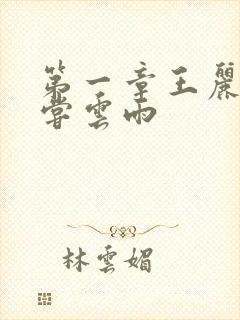 第一章王麗
嘗雲雨
林雲媚